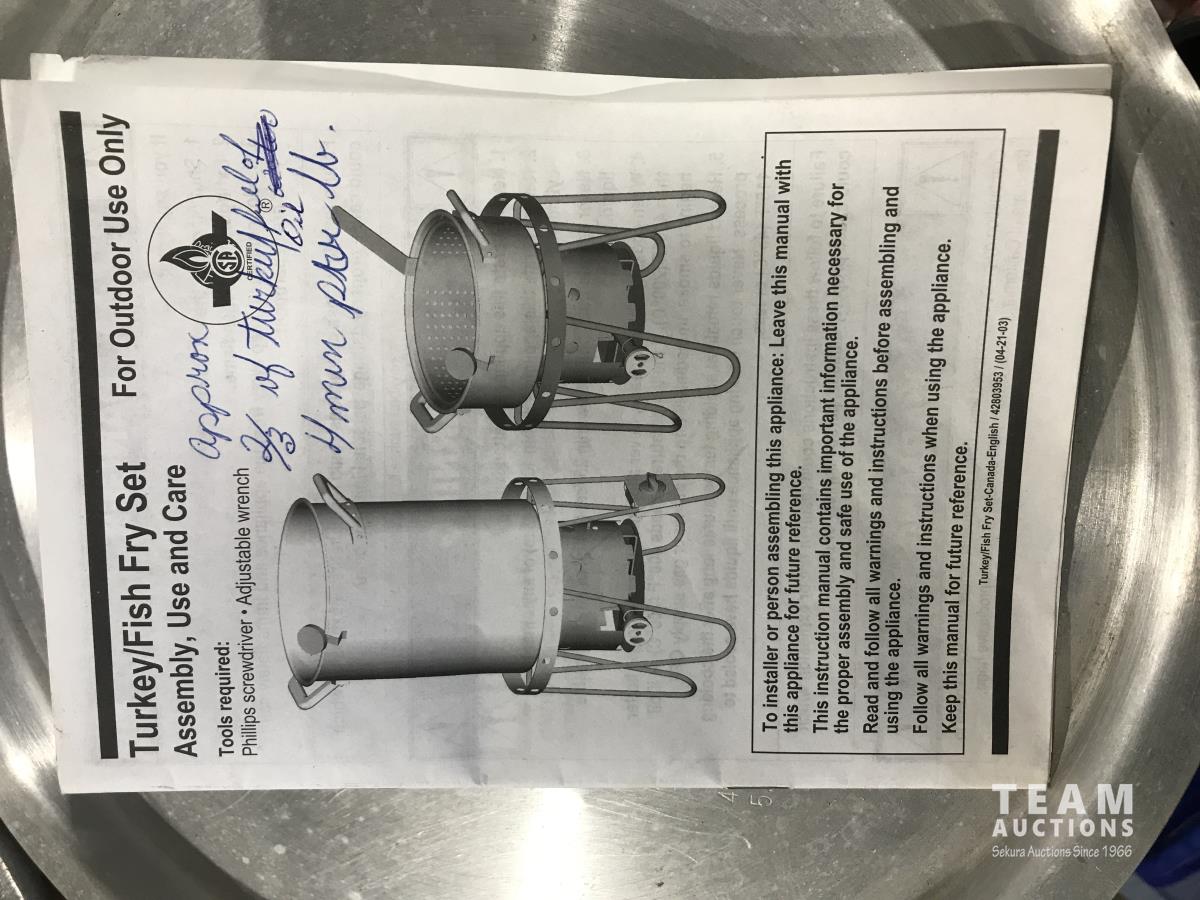 Turkey/Fish Fry Set
For Outdoor Use Only
Assembly, Use and Care
Tools required:
Phillips screwdriver • Adjustable wrench
CSA
CERTIFIED
®
approx
2/3 of turkey
oil
4 min per lb.
To installer or person assembling this appliance: Leave this manual with
this appliance for future reference.
This instruction manual contains important information necessary for
the proper assembly and safe use of the appliance.
Read and follow all warnings and instructions before assembling and
using the appliance.
Follow all warnings and instructions when using the appliance.
Keep this manual for future reference.
Turkey/Fish Fry Set-Canada-English / 42803953 / (04-21-03)
4
5
TEAM
AUCTIONS
Sekura Auctions Since 1966